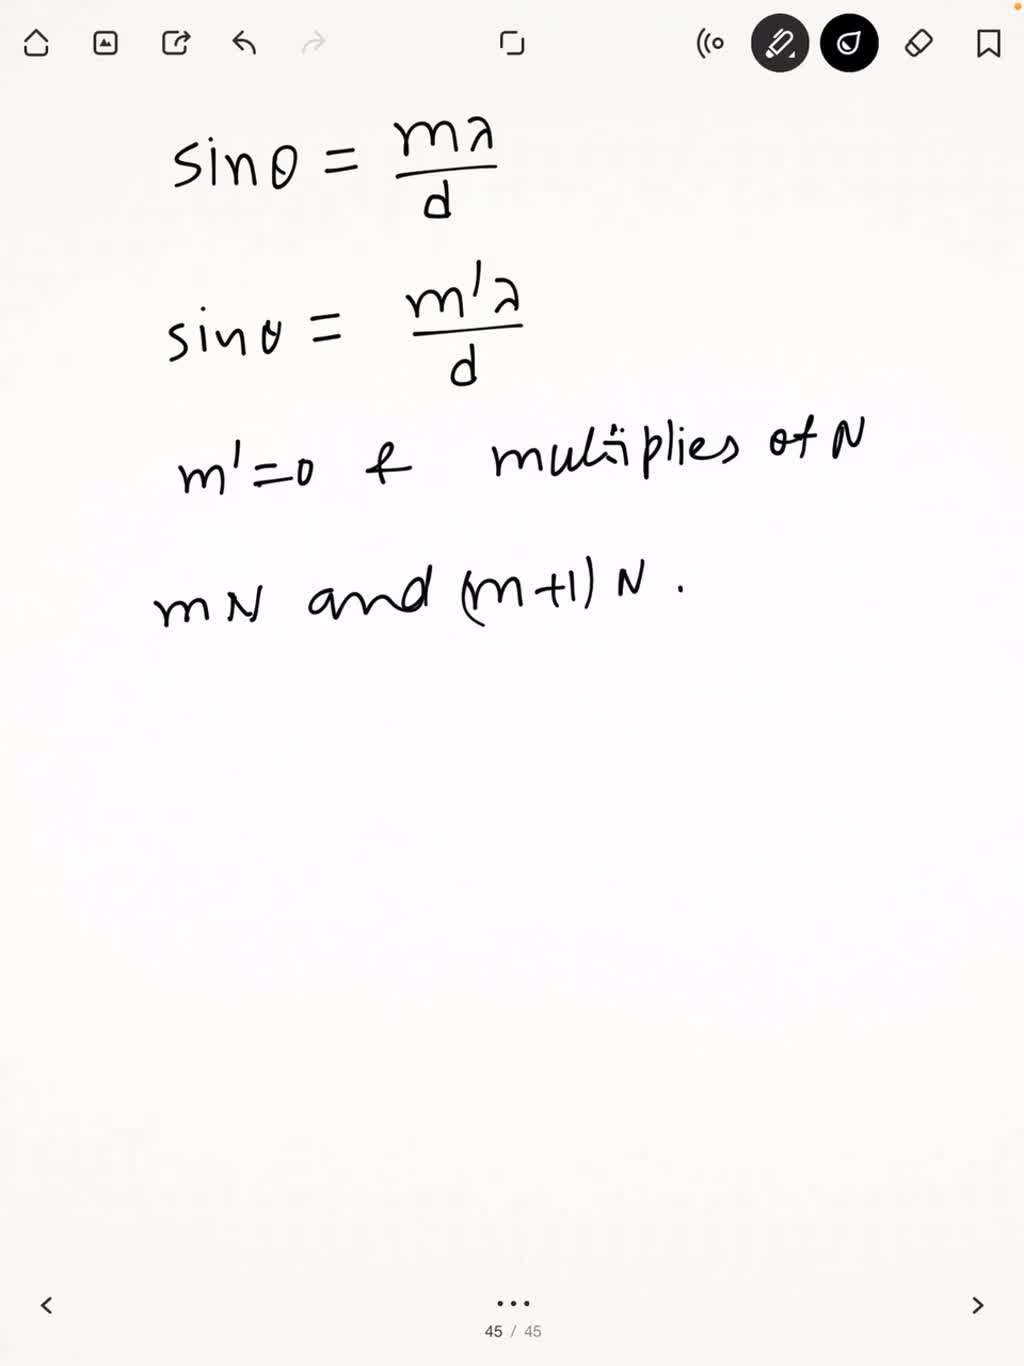 sinθ = mλ/d
sinθ = m'λ/d
m'=0 & multiplies of N
mN and (m+1) N .
45 / 45